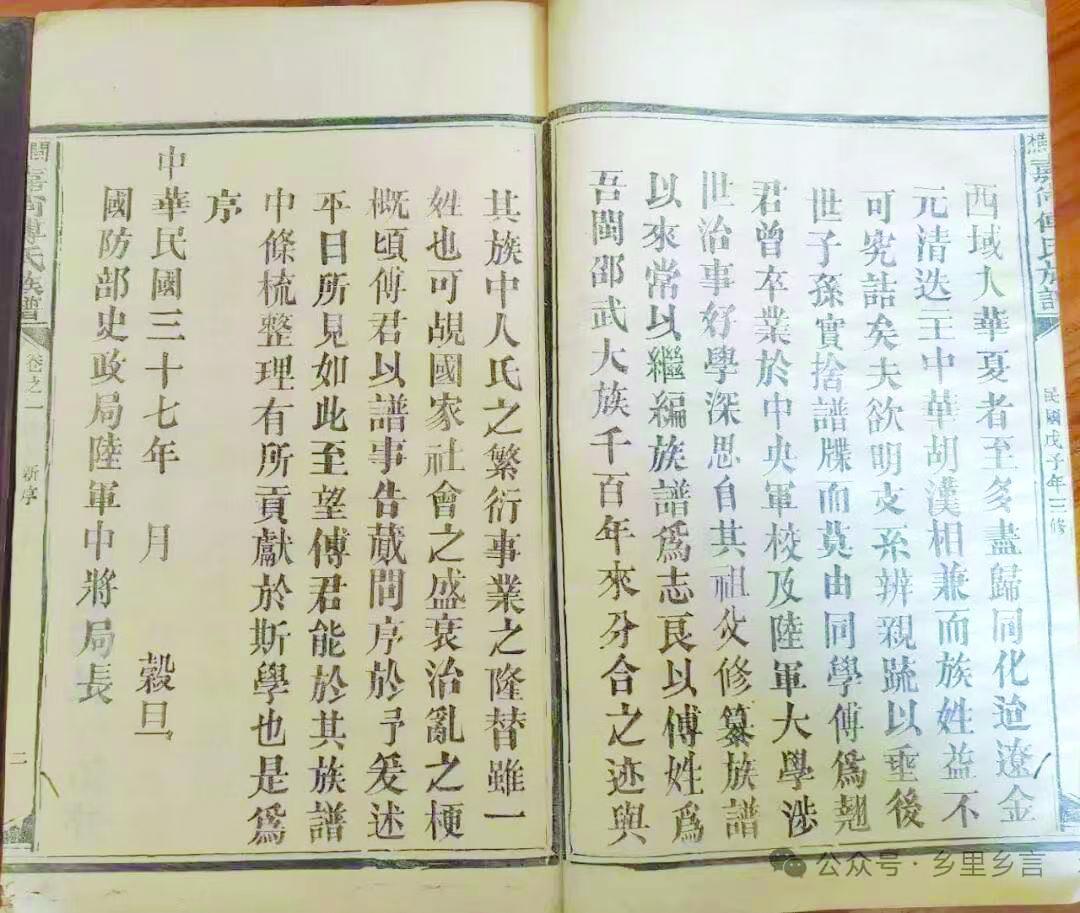 嘉尚傅氏族譜
民國戊子年三修
西域人華夏者至多盡歸同化迨遼金
元清迭王中華胡漢相兼而族姓益不
可究詰矣夫欲明支系辨親疏以垂後
世子孫實捨譜牒而莫由同學傅爲翹
君曾卒業於中央軍校及陸軍大學涉
世治事好學深思自其祖父修纂族譜
以來常以繼編族譜爲志良以傅姓爲
吾閩邵武大族千百年來分合之迹與
其族中人氏之繁衍事業之隆替雖一
姓也可覘國家社會之盛衰治亂之梗
概頃傅君以譜事告蕆問序於予爰述
平日所見如此至望傅君能於其族譜
中條梳整理有所貢獻於斯學也是爲
序
中華民國三十七年 月 穀旦
國防部史政局陸軍中將局長
嘉尚傅氏族譜
卷之一
新序
二
公众号·乡里乡言